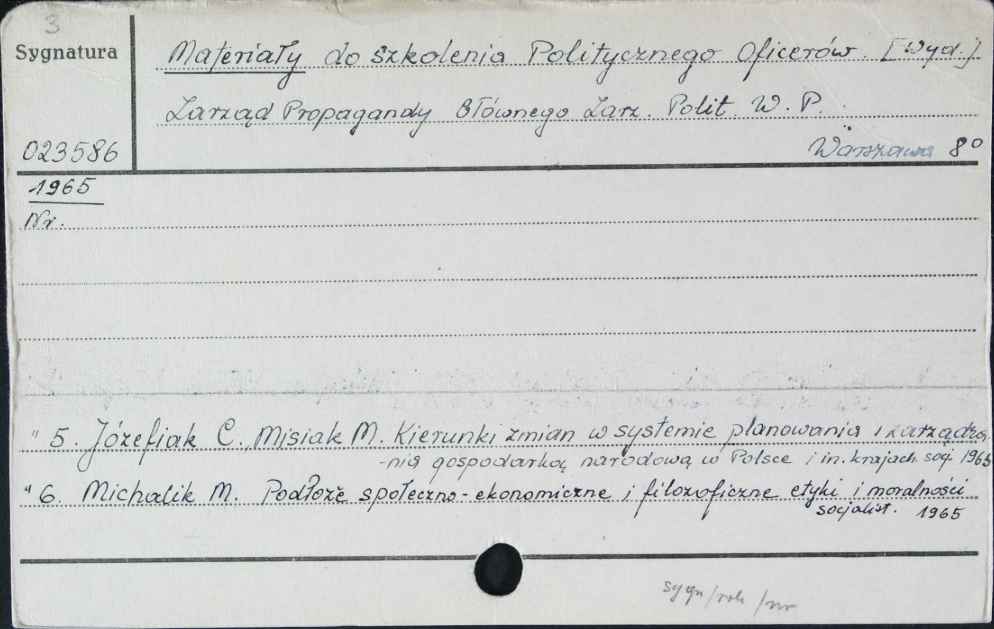 3
Sygnatura
Materiały do szkolenia Politycznego Oficerów. [Wyd.]
Zarząd Propagandy Głównego Zarz. Polit. W. P.
023586
Warszawa 8°
1965
Nr.
" 5. Józefiak C., Misiak M. Kierunki zmian w systemie planowania i zarządza-
-nia gospodarką narodową w Polsce i in. krajach socj. 1965
" 6. Michalik M. Podłoże społeczno-ekonomiczne i filozoficzne etyki i moralności
socjalist. 1965
sygn/rok/nr